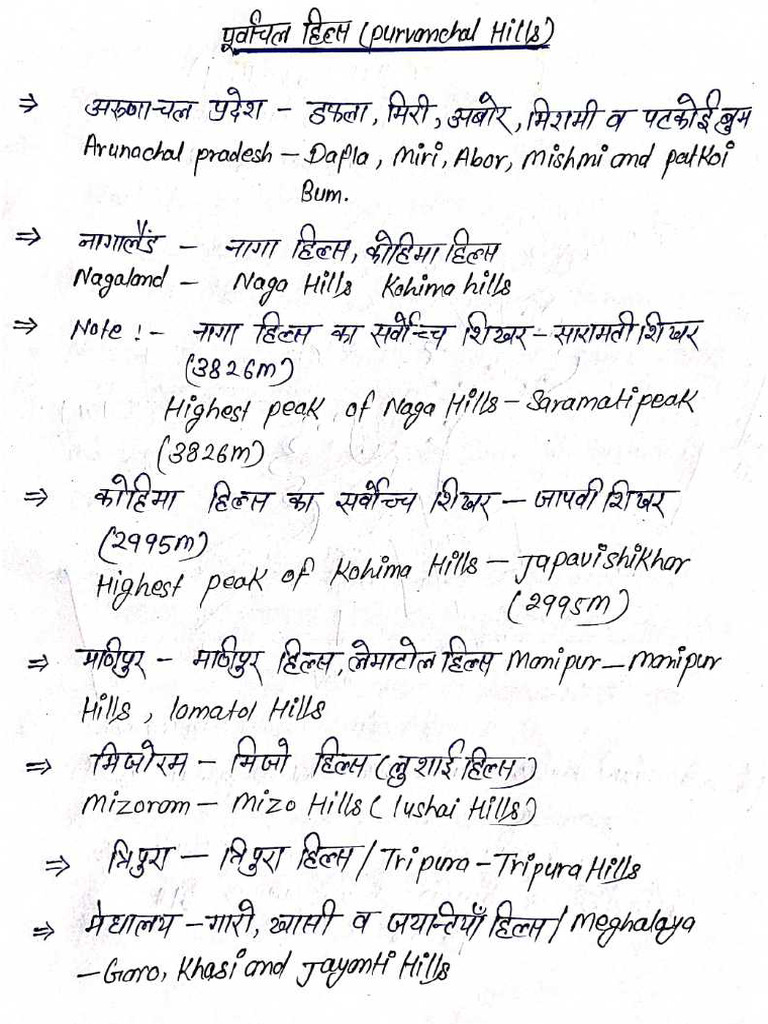 पूर्वांचल हिल्स (purvanchal Hills)
⇒ अरुणाचल प्रदेश - डफला, मिरी, अबोर, मिशमी व पटकोई बुम
Arunachal pradesh - Dafla, miri, Abor, mishmi and patkoi
Bum.
⇒ नागालैंड - नागा हिल्स, कोहिमा हिल्स
Nagaland - Naga Hills Kohima hills
⇒ Note :- नागा हिल्स का सर्वोच्च शिखर - सारामती शिखर
(3826m)
Highest peak of Naga Hills - Saramati peak
(3826m)
⇒ कोहिमा हिल्स का सर्वोच्च शिखर - जापवी शिखर
(2995m)
Highest peak of Kohima Hills - Japavi shikhar
(2995m)
⇒ मणिपुर - मणिपुर हिल्स, लेमाटोल हिल्स Manipur - Manipur
Hills, lomatol Hills
⇒ मिजोरम - मिजो हिल्स (लुशाई हिल्स)
Mizoram - Mizo Hills (lushai Hills)
⇒ त्रिपुरा - त्रिपुरा हिल्स / Tripura - Tripura Hills
⇒ मेघालय - गारो, खासी व जयन्तियाँ हिल्स / Meghalaya
- Garo, Khasi and Jayanti Hills